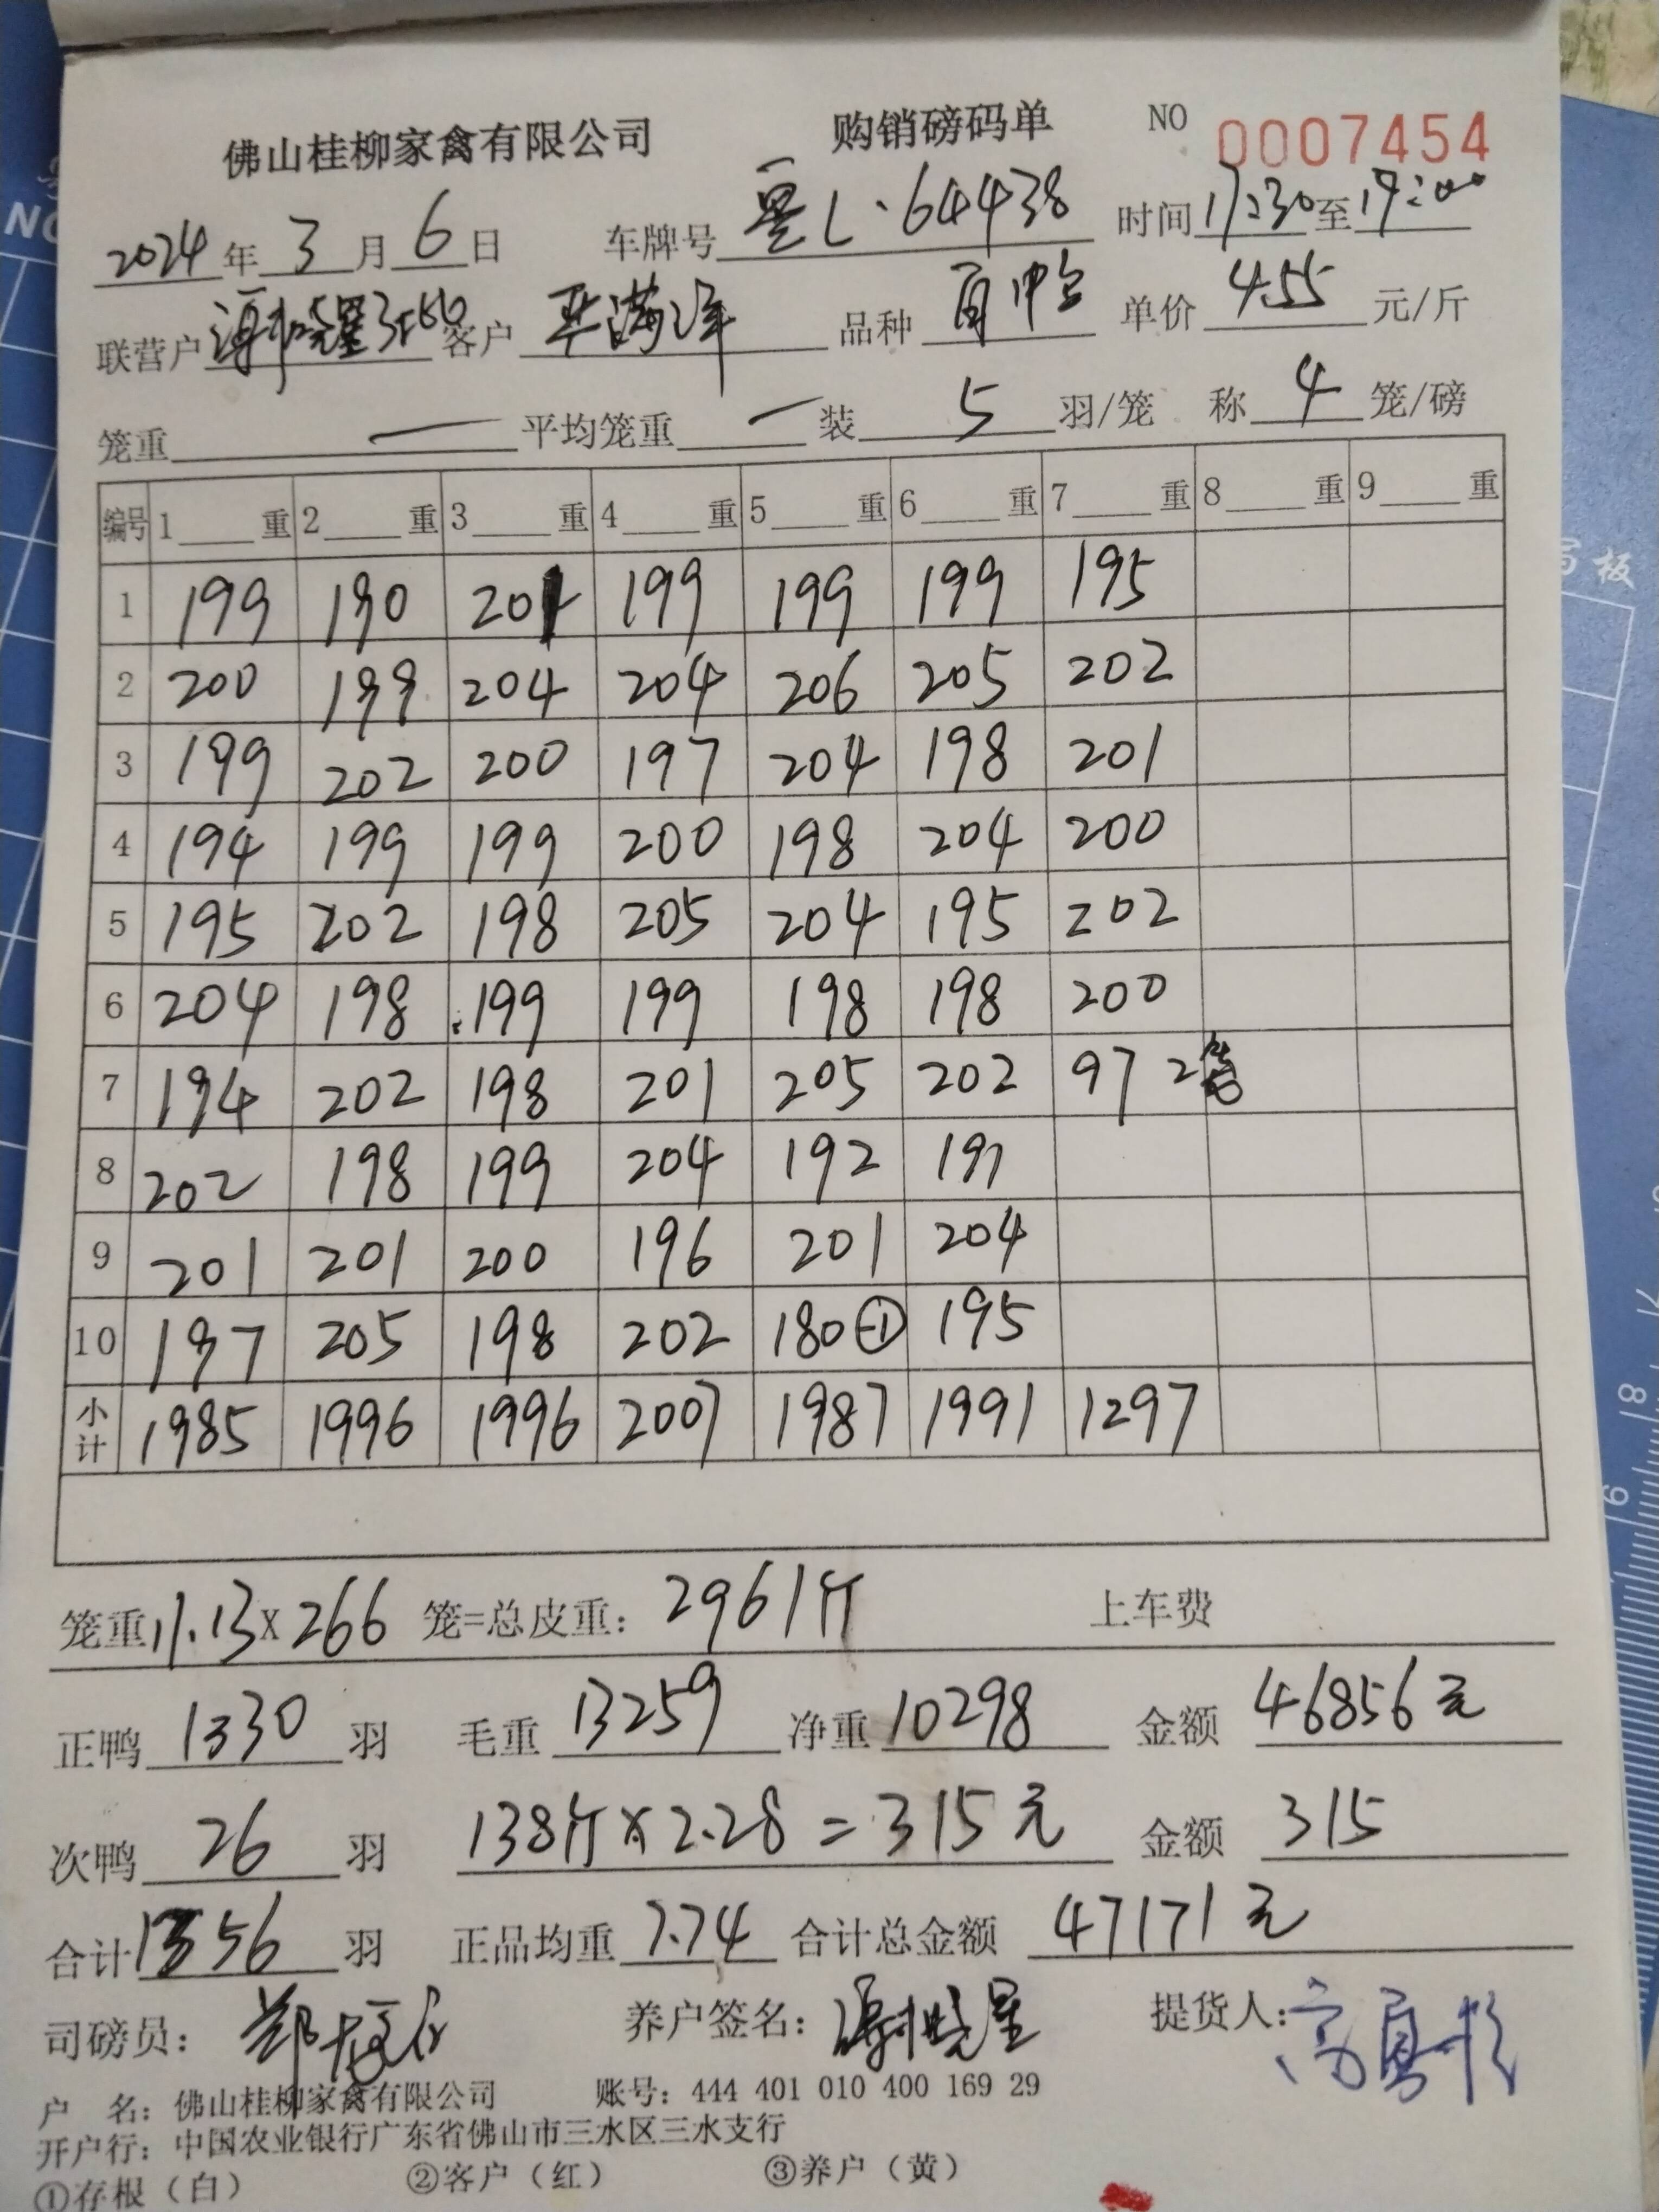 佛山桂柳家禽有限公司 购销磅码单 NO 0007454
2024年3月6日 车牌号 粤L·64438 时间17:30至19:00
联营户 客户 品种 单价4.55元/斤
笼重 一 平均笼重 一 装 5 羽/笼 称 4 笼/磅
编号 1 重 2 重 3 重 4 重 5 重 6 重 7 重 8 重 9 重
1 199 190 201 199 199 199 195
2 200 199 204 204 206 205 202
3 199 202 200 197 204 198 201
4 194 199 199 200 198 204 200
5 195 202 198 205 204 195 202
6 204 198 199 199 198 198 200
7 194 202 198 201 205 202 97 2笼
8 202 198 199 204 192 191
9 201 201 200 196 201 204
10 197 205 198 202 180 -1 195
小计 1985 1996 1996 2007 1987 1991 1297
笼重11.13X266 笼=总皮重：2961斤 上车费
正鸭 1330 羽 毛重 13259 净重 10298 金额 46856元
次鸭 26 羽 138斤×2.28=315元 金额 315
合计1356 羽 正品均重 7.74 合计总金额 47171元
司磅员： 养户签名： 提货人：
户 名：佛山桂柳家禽有限公司 账号：444 401 010 400 169 29
开户行：中国农业银行广东省佛山市三水区三水支行
①存根（白） ②客户（红） ③养户（黄）